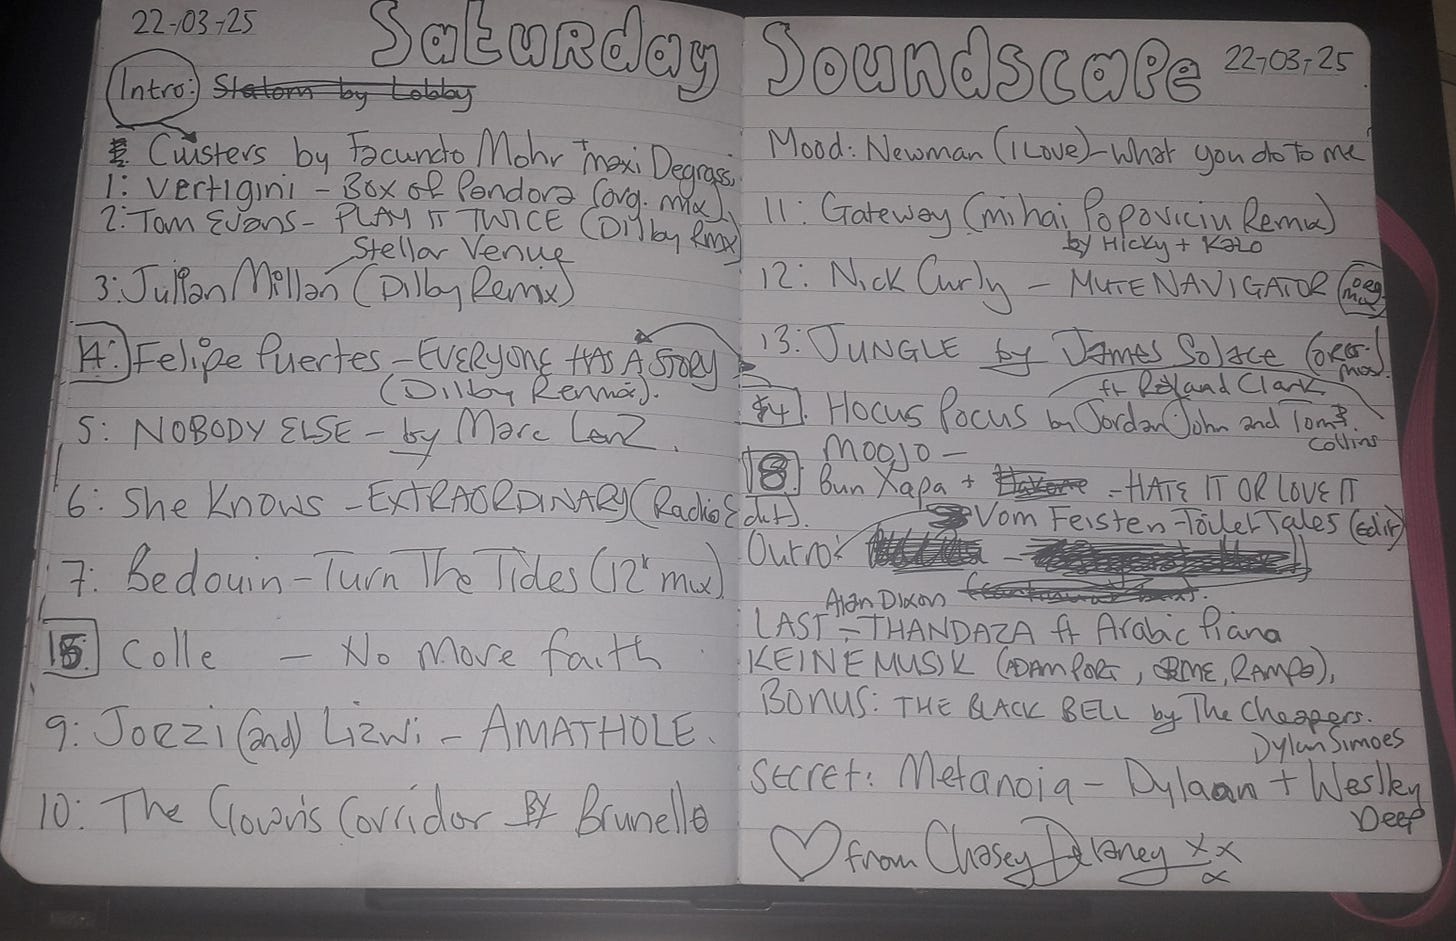 22-03-25 Saturday
Intro: Statom by Lobby
Clusters by Facundo Mohr + maxi Degrassi
1: Vertigini - Box of Pandora (org. mix)
2: Tom Evans - PLAY IT TWICE (Dilby Rmx)
Stellar Venue
3: Julian Millan (Dilby Remix)
14: Felipe Puertes - EVERYONE HAS A STORY
(Dilby Remix).
5: NOBODY ELSE - by Marc Lenz.
6: She Knows - EXTRAORDINARY (Radio Edit).
7: Bedouin - Turn The Tides (12" mix)
15: Colle - No More faith
9: Jozzi (and) Lizwi - AMATHOLE.
10: The Clown's Corridor BY Brunello
Soundscape 22-03-25
Mood: Newman (I Love) - What you do to me
11: Gateway (mihai Popoviciu Remix)
by Hicky + Kalo
12: Nick Curly - MUTE NAVIGATOR (org mix)
13: JUNGLE by James Solace (org. mix)
ft Roland Clark
4. Hocus Pocus by Jordan John and Tom
Collins
Moojo -
18. Bun Xapa + - HATE IT OR LOVE IT
Vom Feisten - Töilet Tales (Edit)
Outro:
Alan Dixon
LAST - THANDAZA ft Arabic Piana
KEINEMUSIK (ADAM PORT, &ME, RAMPA),
BONUS: THE BLACK BELL by The Cheapers.
Dylan Simoes
Secret: Metanoia - Dylaan + Weslley
Deep
from Chasey Delaney xx
x